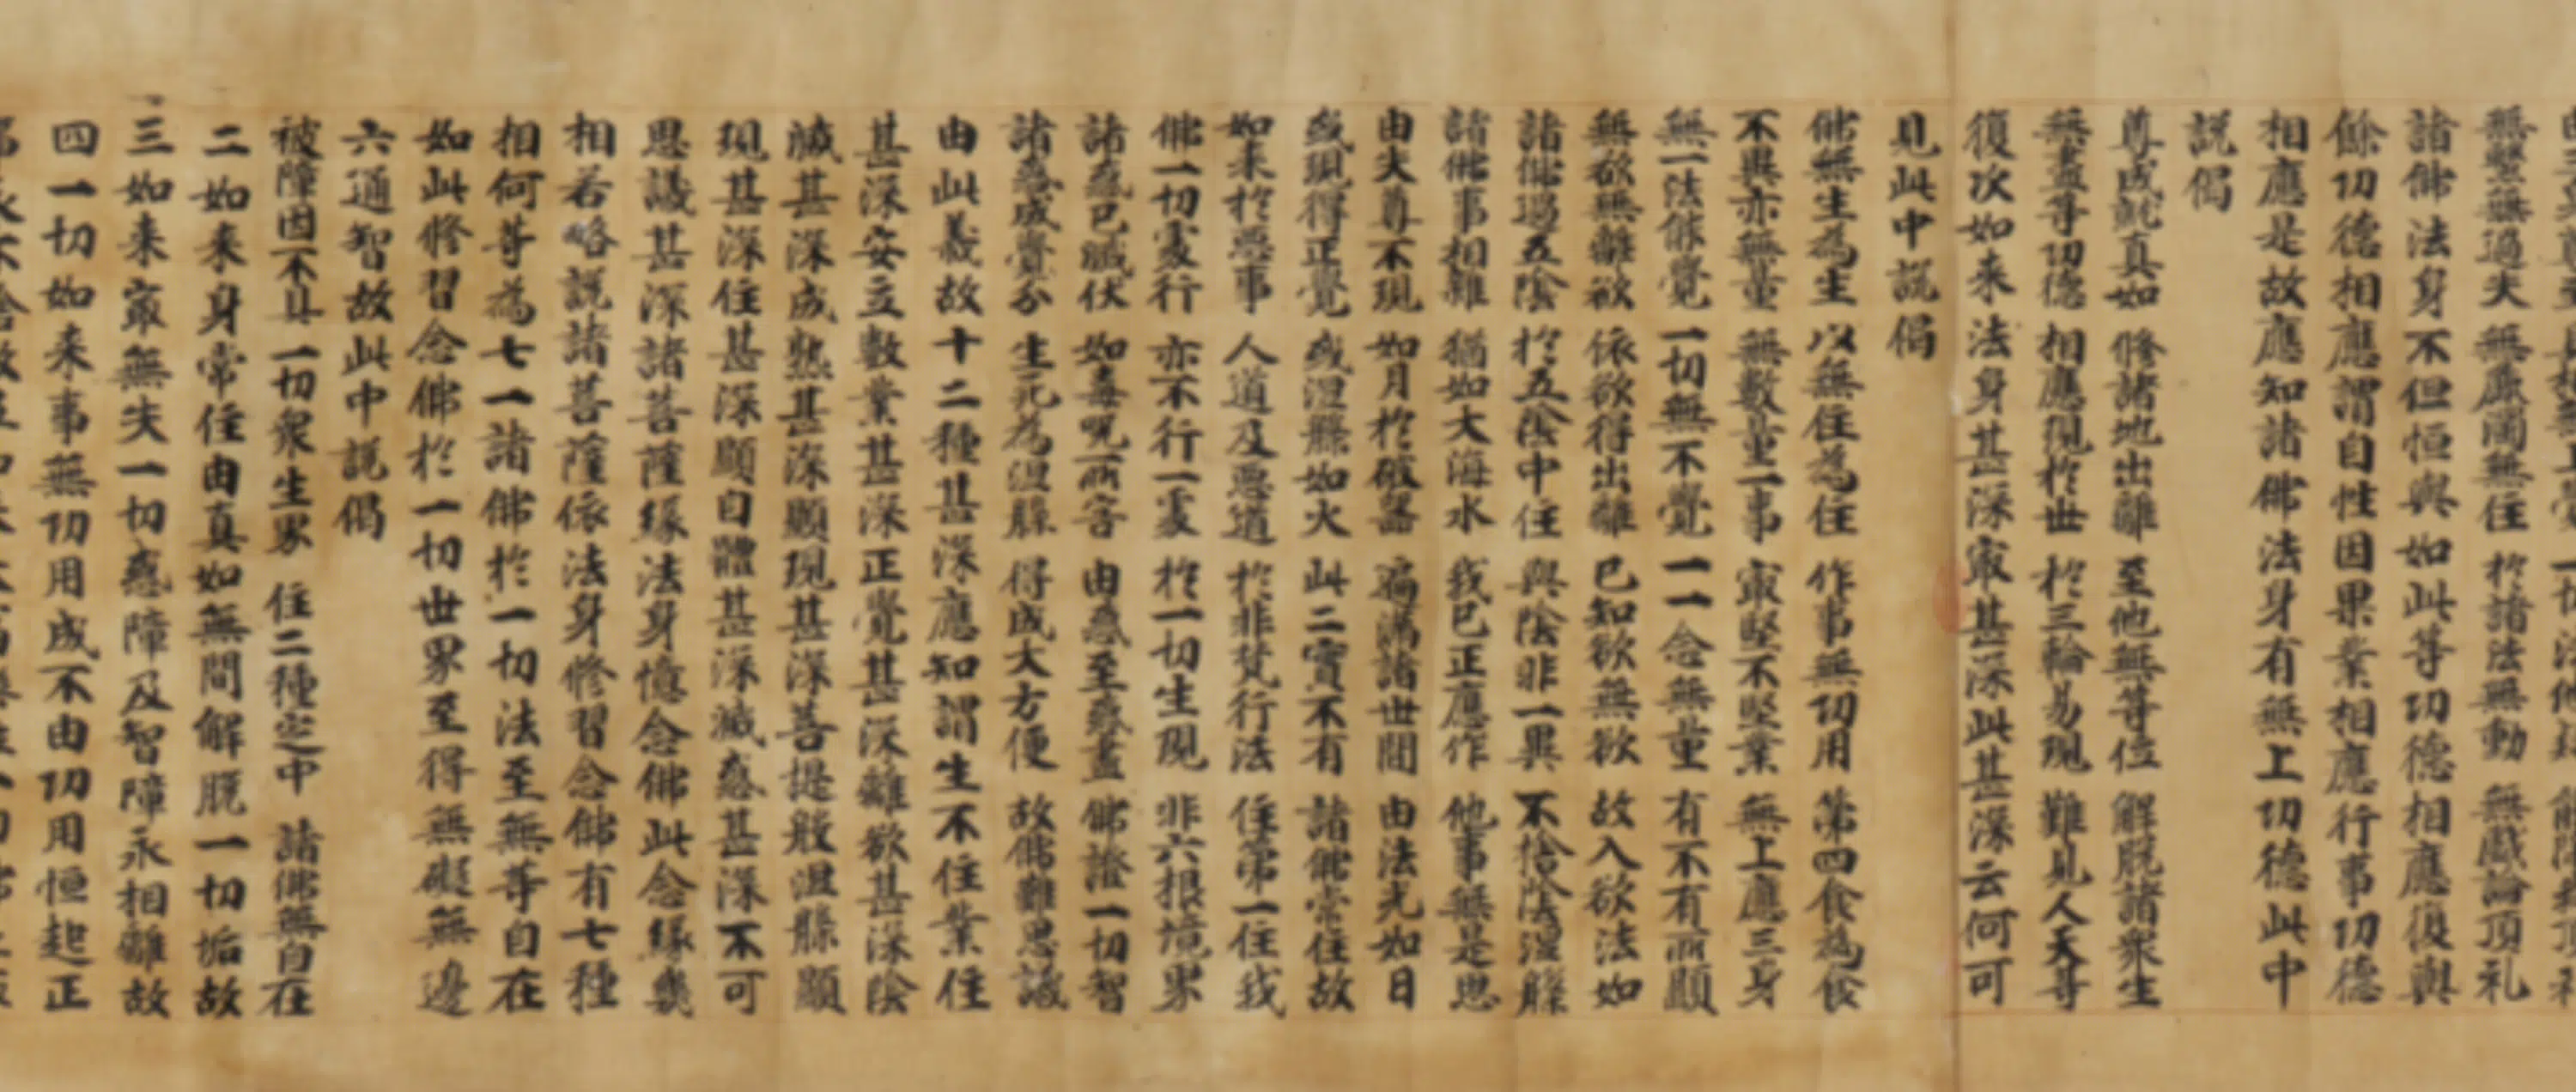 無繫無過失 無麁濁無住 於諸法無動 無戲論頂礼
諸佛法身不但恒與如此等功德相應復與
餘功德相應謂自性因果業相應行事功德
相應是故應知諸佛法身有無上功德此中
說偈
尊成就真如 修諸地出離 至他無等位 解脫諸衆生
無盡等功德 相應現於世 於三輪易現 難見人天等
復次如来法身甚深寂甚深此甚深云何可
見此中說偈
佛無生為生 以無住為住 作事無功用 第四食為食
不異亦無量 無數量一事 寂堅不堅業 無上應三身
無一法能覺 一切無不覺 一一念無量 有不有所顯
無欲無離欲 依欲得出離 已知欲無欲 故入欲法如
諸佛過五陰 於五陰中住 與陰非一異 不捨陰涅槃
諸佛事相雜 猶如大海水 我已正應作 他事無是思
由失尊不現 如月於破器 遍滿諸世間 由法光如日
或現得正覺 或涅槃如火 此二實不有 諸佛常住故
如来於惡事 人道及惡道 於非梵行法 住第一住我
佛一切處行 亦不行一處 於一切生現 非六根境界
諸惑已滅伏 如毒呪所害 由惑至惑盡 佛證一切智
諸惑成覺分 生死為涅槃 得成大方便 故佛難思議
由此義故十二種甚深應知謂生不住業住
甚深安立數業甚深正覺甚深離欲甚深陰
滅甚深成熟甚深顯現甚深菩提般涅槃顯
現甚深住甚深顯自體甚深滅惑甚深不可
思議甚深諸菩薩緣法身憶念佛此念緣幾
相若略說諸菩薩依法身修習念佛有七種
相何等為七一諸佛於一切法至無等自在
如此修習念佛於一切世界至得無礙無邊
六通智故此中說偈
被障因不具 一切衆生界 住二種定中 諸佛無自在
二如来身常住由真如無間解脫一切垢故
三如来寂無失一切惑障及智障永相離故
四一切如来事無功用成不由功用恒起正